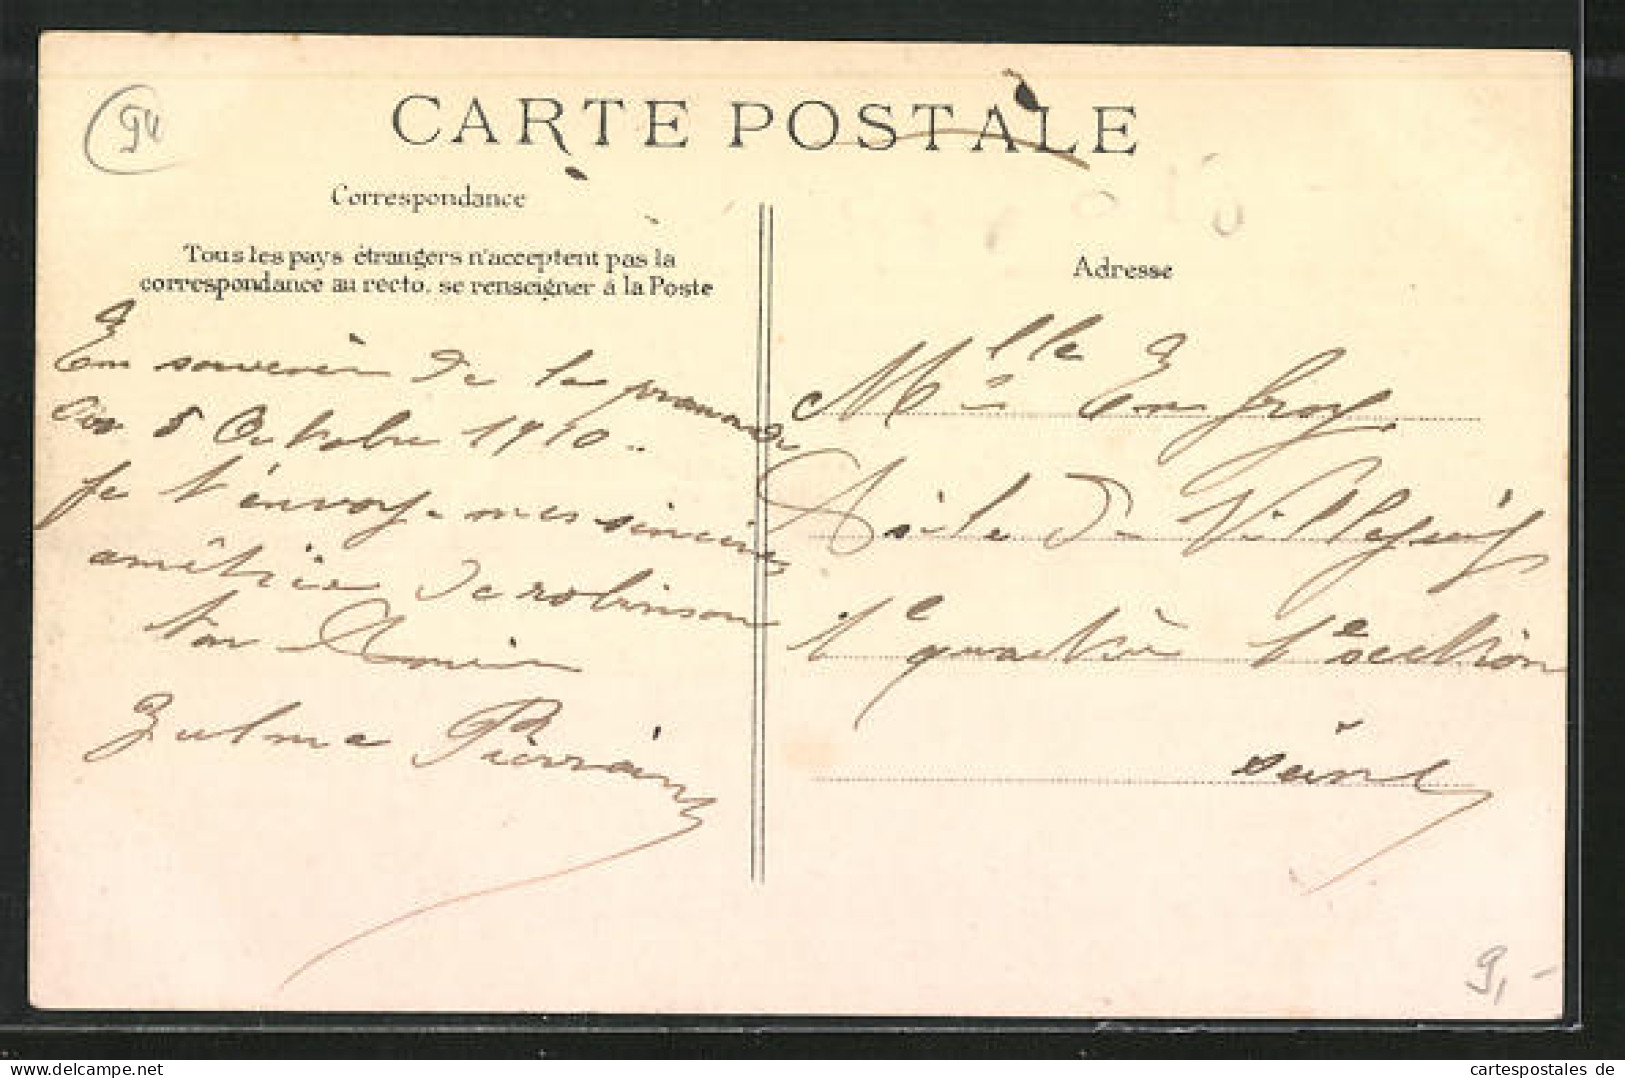 94
CARTE POSTALE
Correspondance
Tous les pays étrangers n'acceptent pas la
correspondance au recto, se renseigner à la Poste
En souvenir de la
5 Octobre 1910..
Je t'envoye mes sincères
amêtiée de robinson
ton Amie
Zulma Pierrain
Adresse
Melle Enfroy
Asile de Villejuif
1e quartiè 1e section
Seine
9,-
cartespostales de